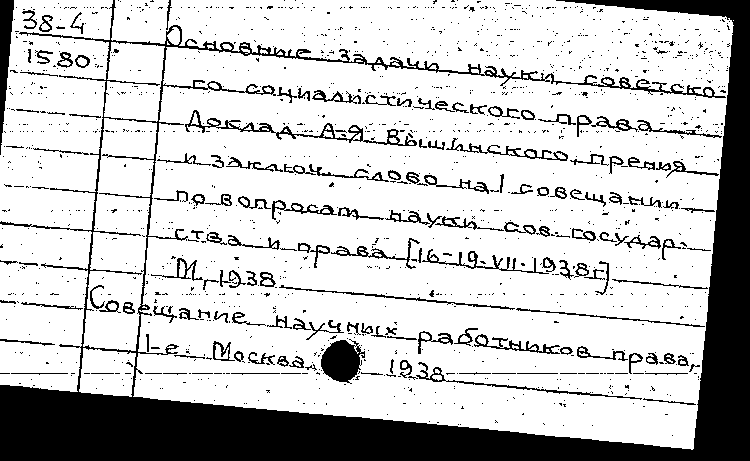 38-4
1580
Основные задачи науки советско-
го социалистического права
Доклад А.Я. Вышинского, прения
и заключ. слово на I совещании
по вопросам науки сов. государ-
ства и права [16-19.VII.1938г]
М, 1938.
Совещание научных работников права,
1-е. Москва. 1938